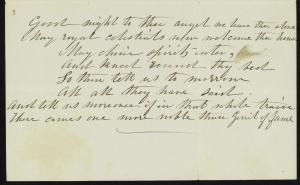 Good night to thee angel we leave thee alone
May royal celestials now welcome thee home
May divine spirits enter
And kneel round thy bed
So then tell us to morrow
All all they have said
And tell us moreover if in that whole train
There comes one more noble than